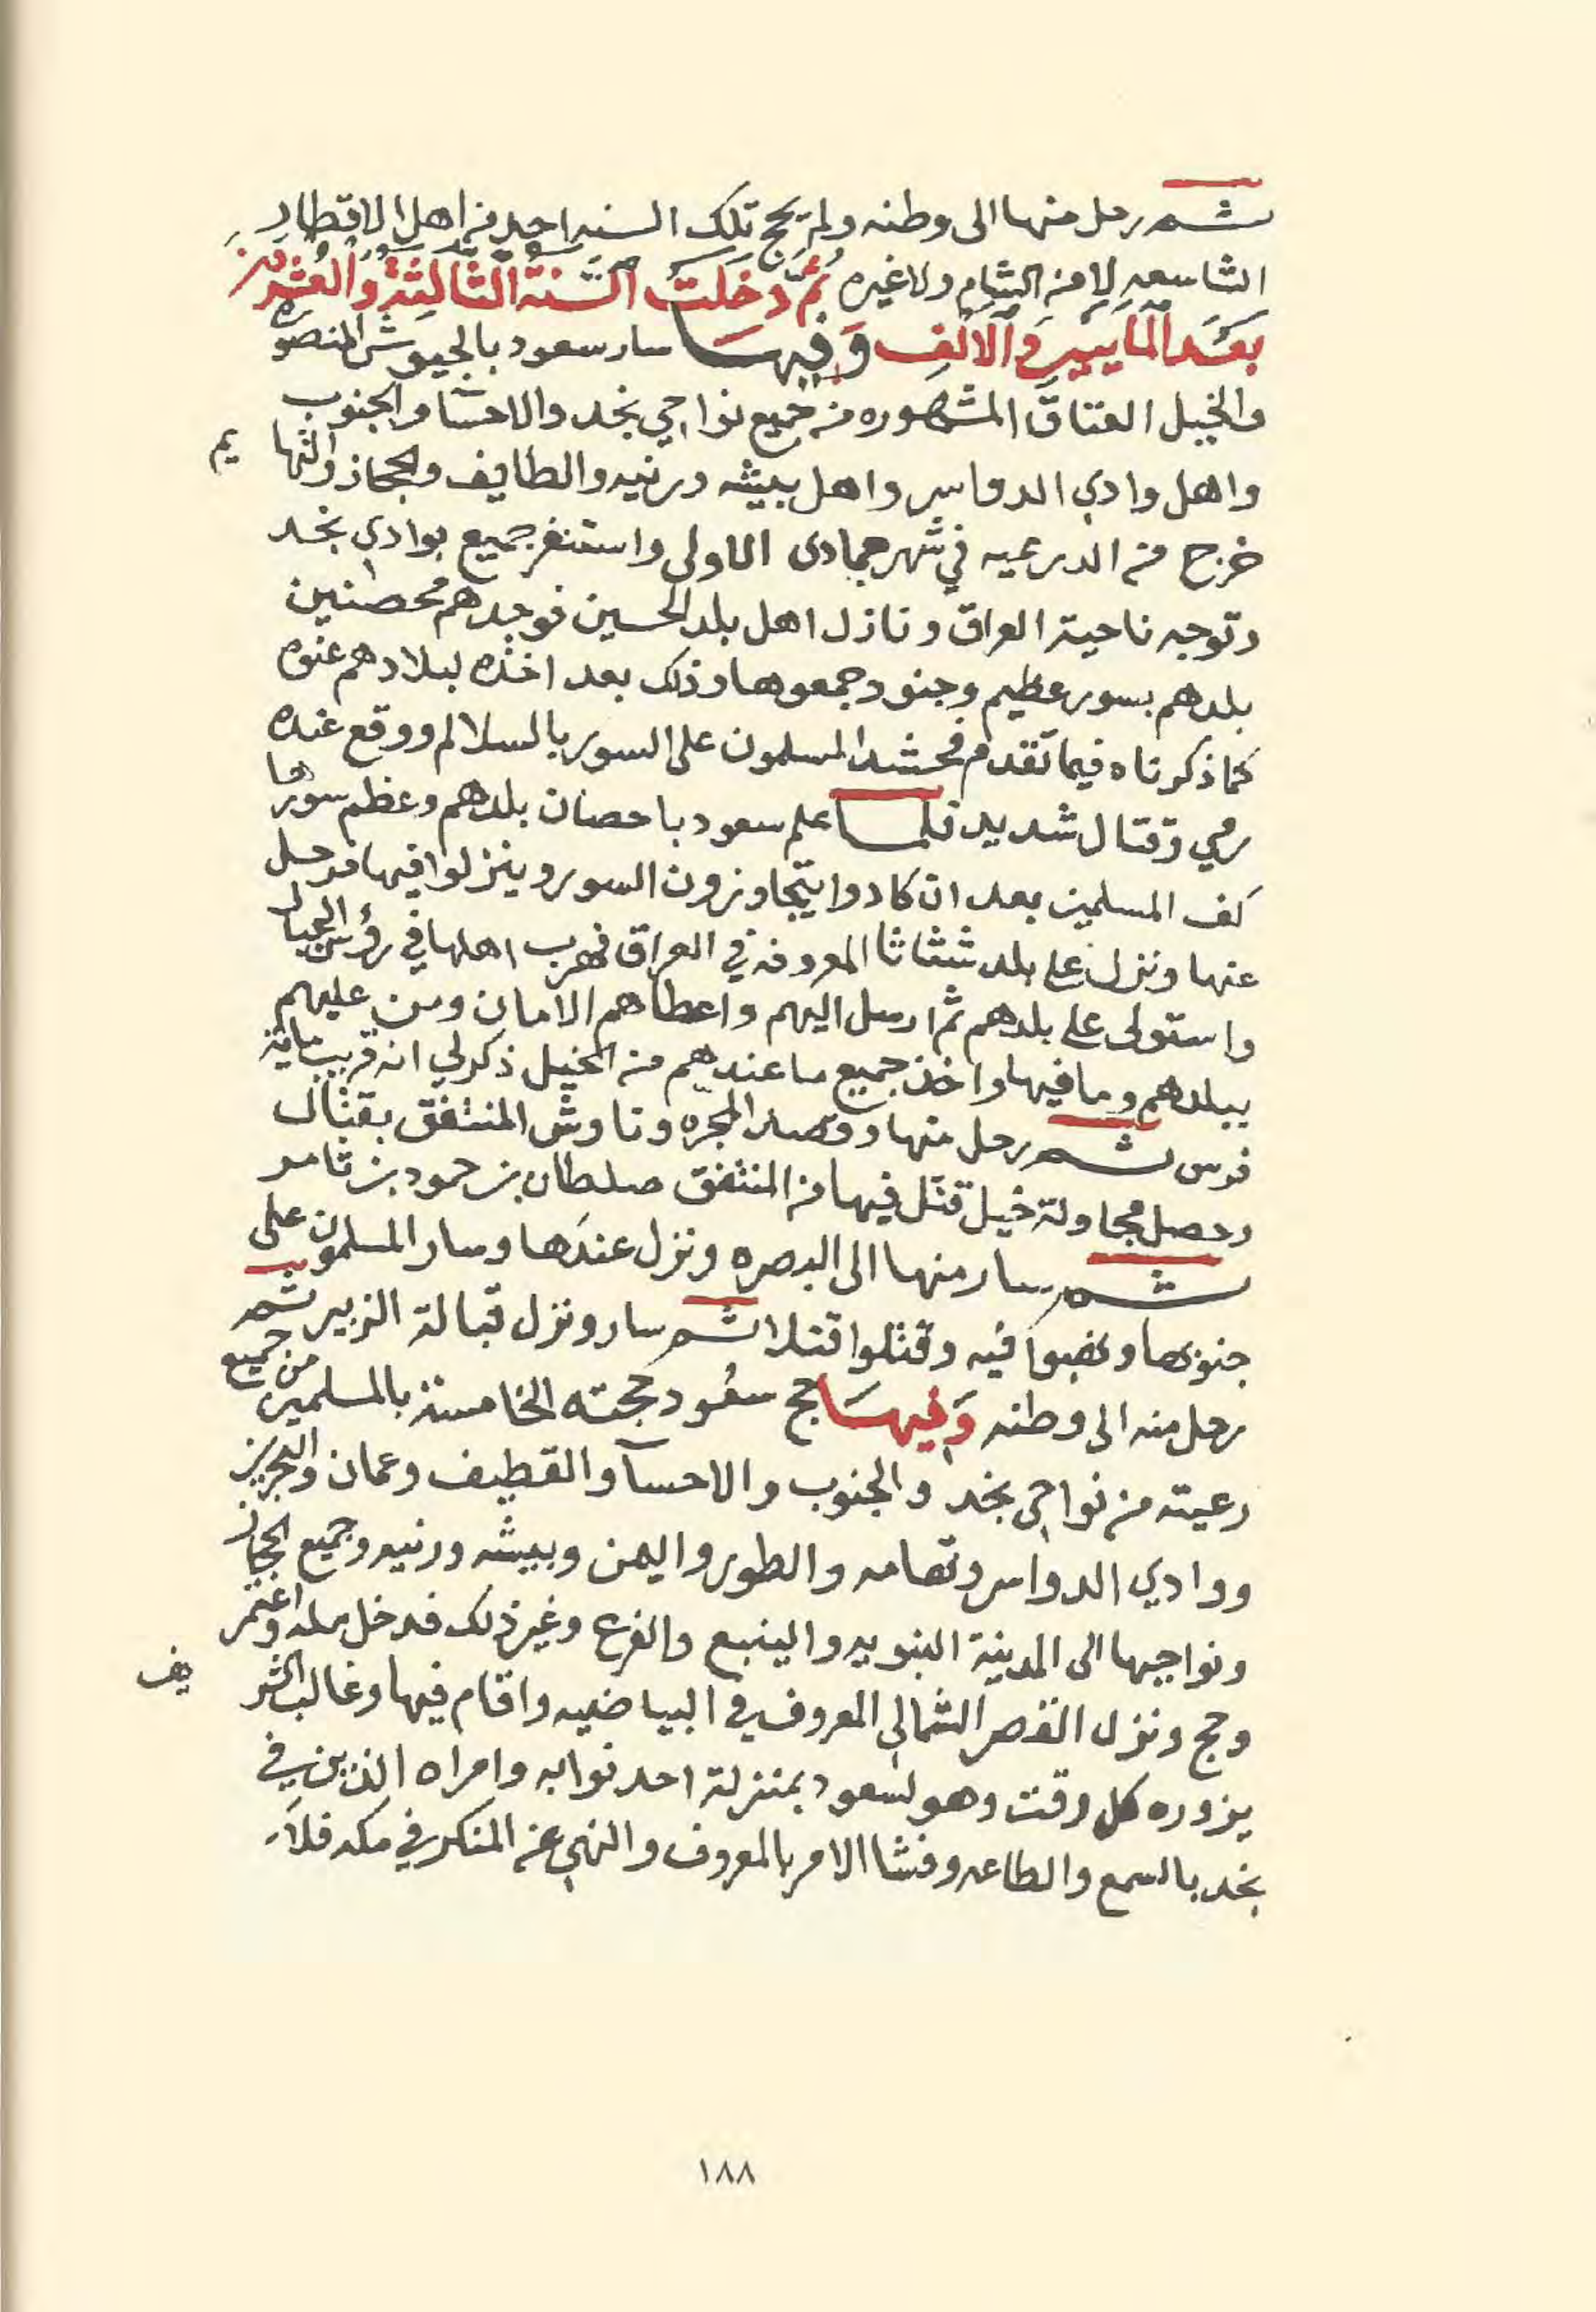 ثم رحل منها الى وطنه ولم يحج تلك السنه احد من اهل الاقطار
الشاسعه لا من الشام ولا غيره ثُمَّ دَخَلَتْ السَّنَة الثَّالِثَةُ وَالعِشْرُون
بَعْدَ المايتين والالف وَفِيهَا سار سعود بالجيوش المنصوره
والخيل العتاق المشهوره من جميع نواحي نجد والاحسا والجنوب
واهل وادي الدواسر واهل بيشه ورنيه والطايف والحجاز والتهايم
خرج من الدرعيه في شهر جمادى الاولى واستنفر جميع بوادي نجد
وتوجه ناحية العراق ونازل اهل بلد الحسين فوجدهم محصنين
بلدهم بسور عظيم وجنود جمعوها وذلك بعد اخذه لبلادهم عنوه
كما ذكرناه فيما تقدم فحشد المسلمون على السور بالسلالم ووقع عنده
رمي وقتال شديد فلما علم سعود باحصان بلدهم وعظم سورها
كف المسلمين بعد ان كادوا يتجاوزون السور وينزلوا فيها فرحل
عنها ونزل على بلد شثاثا المعروفه في العراق فهرب اهلها في رؤس الجبال
واستولى على بلدهم ثم ارسل اليهم واعطاهم الامان ومن عليهم
ببلدهم وما فيها واخذ جميع ما عندهم من الخيل ذكر لي انه قريب ماية
فرس ثم رحل منها وقصد المجره وناوش المنتفق بقتال
وحصل مجاولة خيل قتل فيها من المنتفق صلطان بن حمود بن ثامر
ثم سار منها الى البصره ونزل عندها وسار المسلمون على
جنوبها ونهبوا فيه وقتلوا قتلا ثم سار ونزل قبالة الزبير ثم
رحل منه الى وطنه وَفِيهَا حج سعود حجته الخامسة بالمسلمين من جميع
رعيته من نواحي نجد والجنوب والاحسآ والقطيف وعمان والبحرين
ووادي الدواسر وتهامه والطور واليمن وبيشه ورنيه وجميع الحجاز
ونواحيها الى المدينة النبويه والينبع والفرع وغير ذلك فدخل مكه واعتمر
وحج ونزل القصر الشمالي المعروف في البياضيه واقام فيها وغالب الشريف
يزوره كل وقت وهو لسعود بمنزلة احد نوابه وامراه الذين في
نجد بالسمع والطاعه وفشا الامر بالمعروف والنهي عن المنكر في مكه فلا
١٨٨